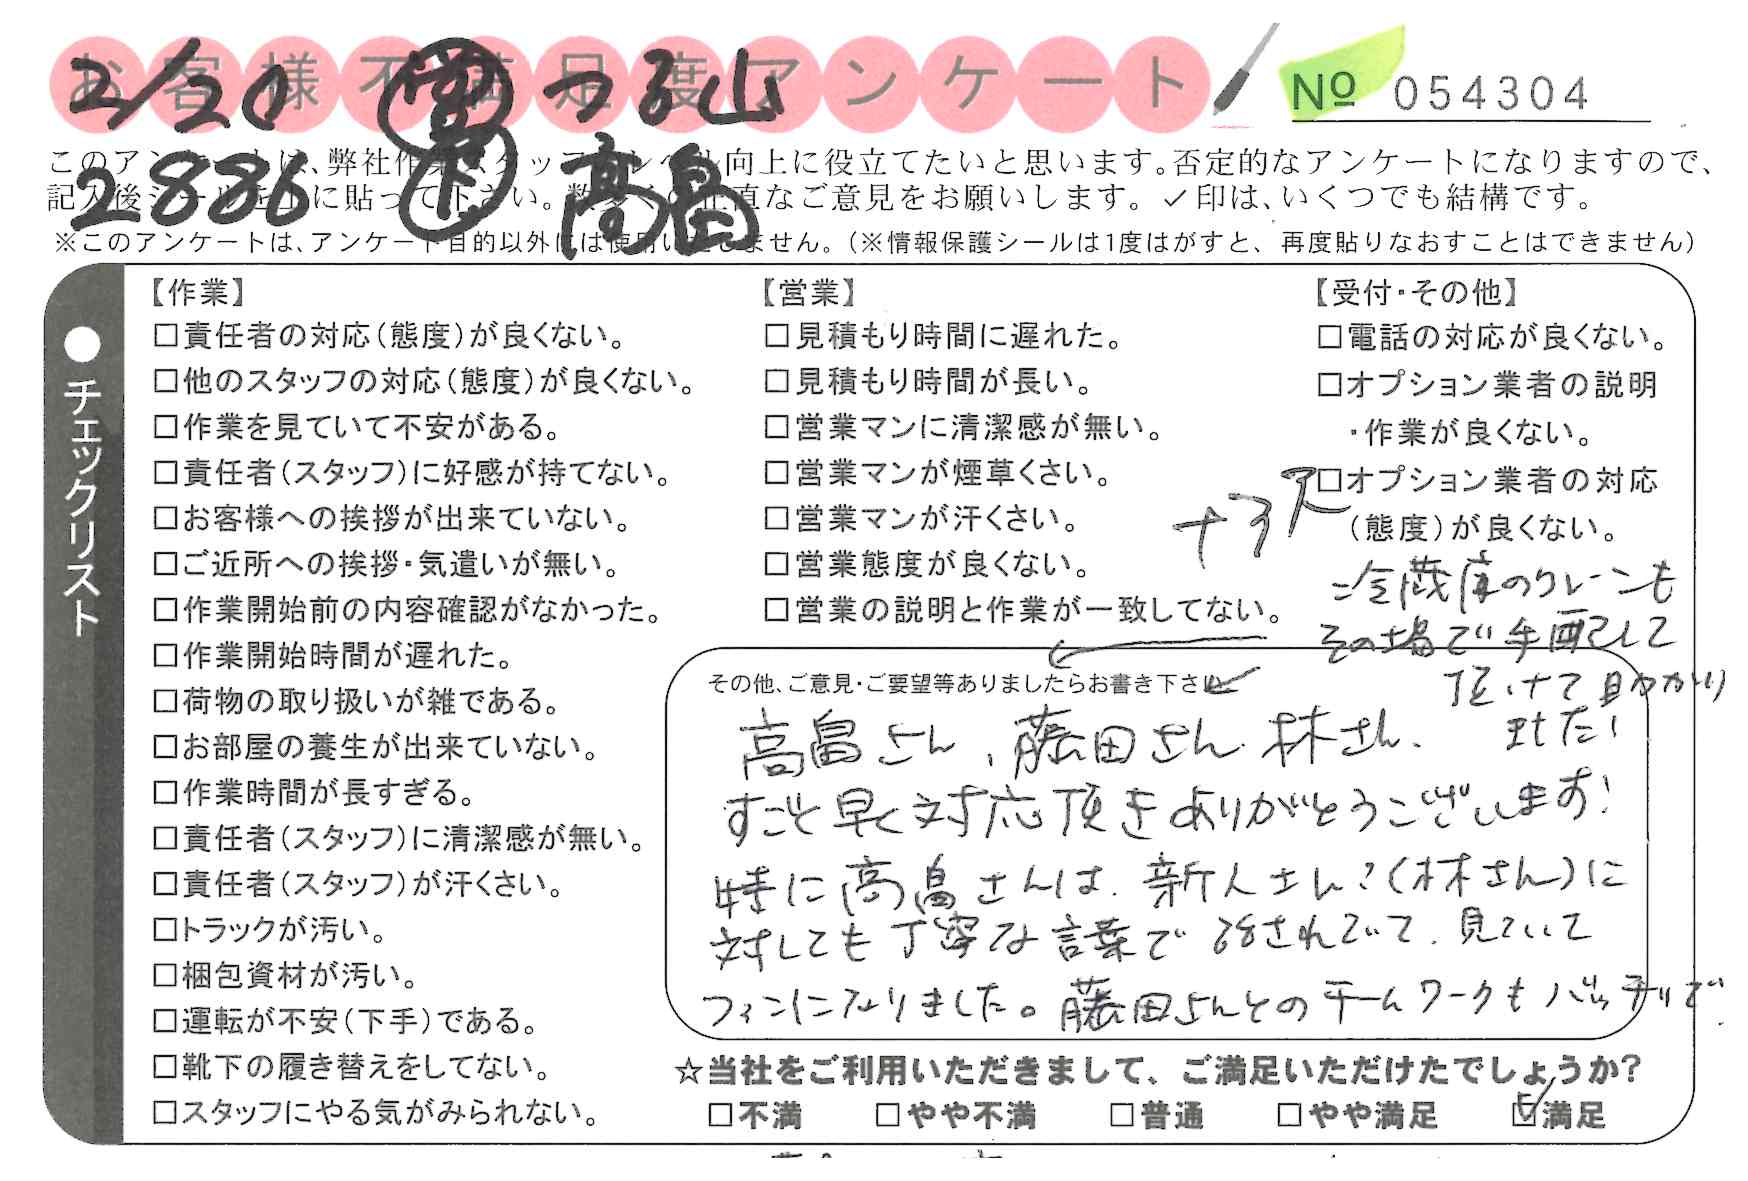 お客様不満足度アンケート
№ 054304
2/20 つる山
2886 高畠
このアンケートは、弊社作業スタッフのレベル向上に役立てたいと思います。否定的なアンケートになりますので、
記入後シールを上に貼って下さい。数多くの正直なご意見をお願いします。✓印は、いくつでも結構です。
※このアンケートは、アンケート目的以外には使用いたしません。（※情報保護シールは1度はがすと、再度貼りなおすことはできません）
●チェックリスト
【作業】
□責任者の対応（態度）が良くない。
□他のスタッフの対応（態度）が良くない。
□作業を見ていて不安がある。
□責任者（スタッフ）に好感が持てない。
□お客様への挨拶が出来ていない。
□ご近所への挨拶・気遣いが無い。
□作業開始前の内容確認がなかった。
□作業開始時間が遅れた。
□荷物の取り扱いが雑である。
□お部屋の養生が出来ていない。
□作業時間が長すぎる。
□責任者（スタッフ）に清潔感が無い。
□責任者（スタッフ）が汗くさい。
□トラックが汚い。
□梱包資材が汚い。
□運転が不安（下手）である。
□靴下の履き替えをしてない。
□スタッフにやる気がみられない。
【営業】
□見積もり時間に遅れた。
□見積もり時間が長い。
□営業マンに清潔感が無い。
□営業マンが煙草くさい。
□営業マンが汗くさい。
□営業態度が良くない。
□営業の説明と作業が一致してない。
【受付・その他】
□電話の対応が良くない。
□オプション業者の説明
・作業が良くない。
□オプション業者の対応
（態度）が良くない。
冷蔵庫のクレーンも
その場で手配して
頂けて助かり
ました!
その他、ご意見・ご要望等ありましたらお書き下さい
高畠さん、藤田さん、林さん、
すごく早く対応頂きありがとうございます!
特に高畠さんは、新人さん?(林さん)に
対しても丁寧な言葉で話されていて、見ていて
ファンになりました。藤田さんとのチームワークもバッチリで
☆当社をご利用いただきまして、ご満足いただけたでしょうか?
□不満 □やや不満 □普通 □やや満足 ☑満足